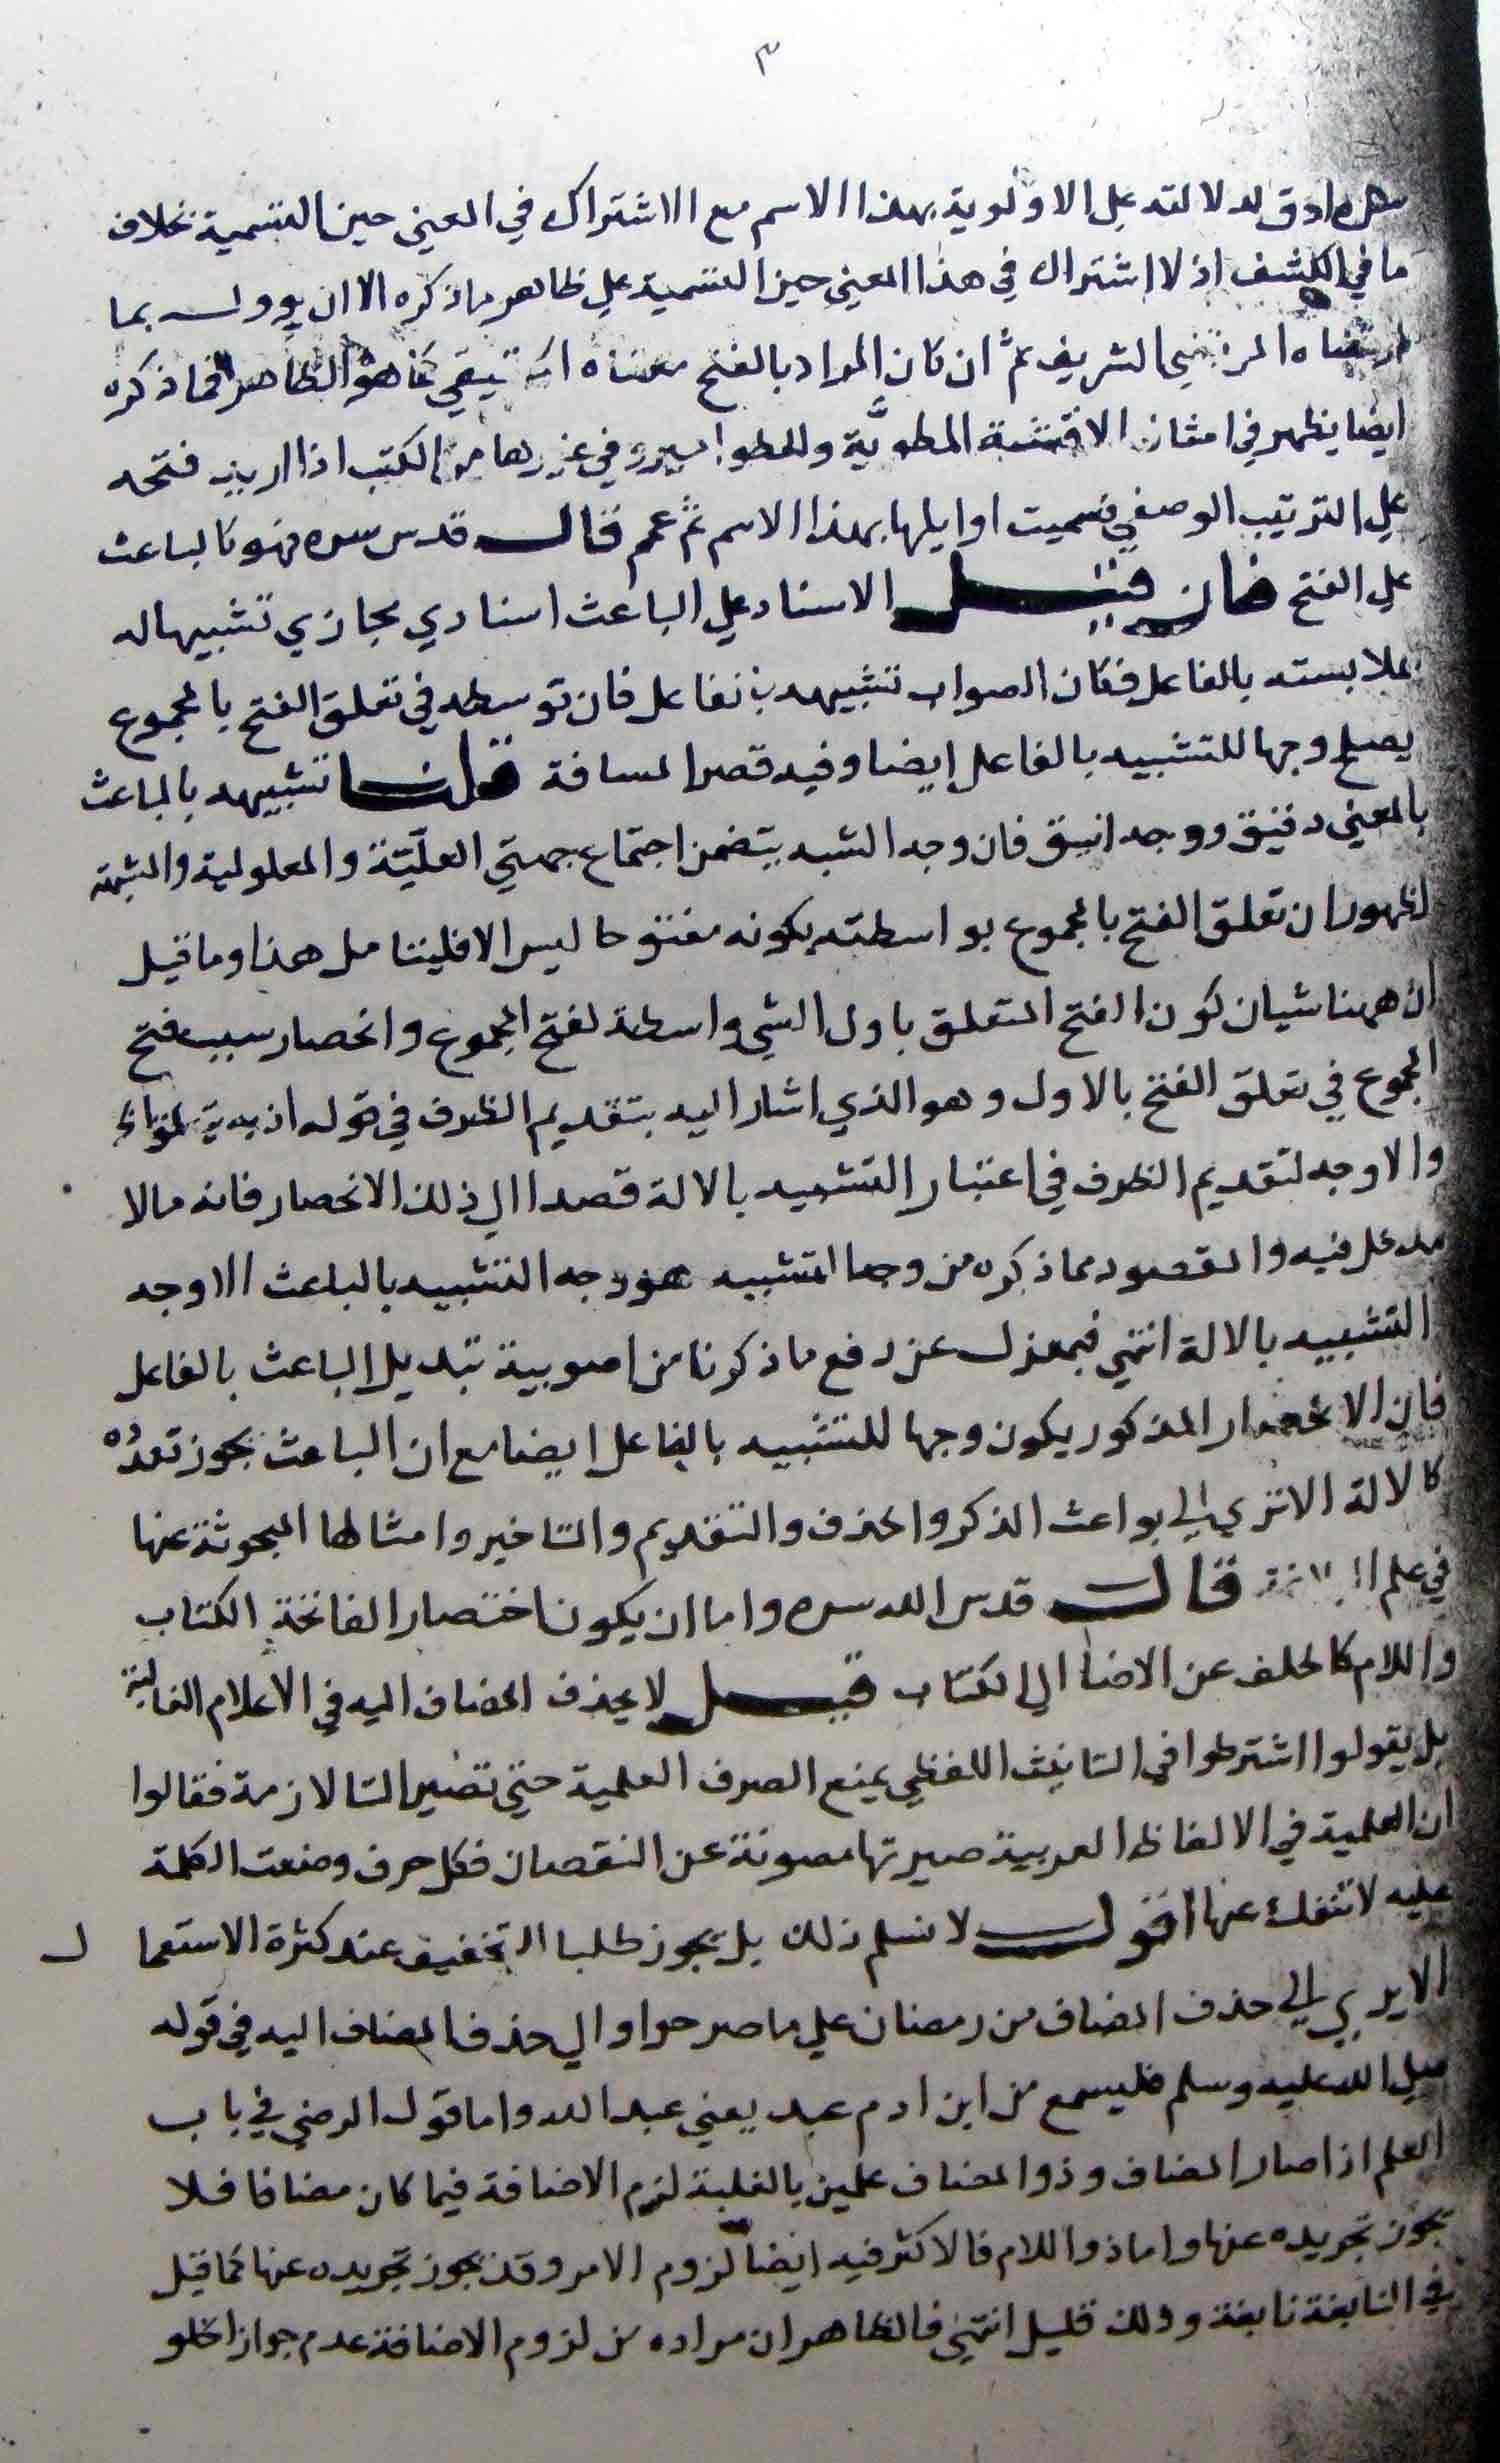 ٣
ادق لدلالته علي الاولوية بهذا الاسم مع الاشتراك في المعني حين التسمية بخلاف
ما في الكشف اذ لا اشتراك في هذا المعني حين التسمية علي ظاهر ما ذكره الا ان يوول بما
الشريف ثم ان كان المراد بالفتح معناه كما هو الظاهر فما ذكره
ايضا يظهر في امثال الاقمشة المطويَّة و في غيرها من الكتب اذا اريد فتحه
علي الترتيب الوصفي فسميت اوايلها بهذا الاسم ثم عمم قال قدس سره فهو كالباعث
علي الفتح فان قيل الاسناد علي الباعث اسنادي مجازي تشبيها له
بملابسته بالفاعل فكان الصواب تشبيهه بالفاعل فان توسطه في تعلق الفتح بالمجموع
يصلح وجها للتشبيه بالفاعل ايضا وفيه قصر المسافة قلنا تشبيهه بالباعث
بالمعني دقيق ووجه انيق فان وجه الشبه يتضمن اجتماع جهتي العليّة والمعلولية
لظهور ان تعلق الفتح بالمجموع بواسطته بكونه مفتوحا ليس الا فليتامل هذا وما قيل
ان ههنا شيان كون الفتح المتعلق باول الشي واسطة لفتح المجموع وانحصار سبب فتح
المجموع في تعلق الفتح بالاول وهو الذي اشار اليه بتقديم الظرف في قوله اذ به
والا وجه لتقديم الظرف في اعتبار التشبيه بالالة قصدا الي ذلك الانحصار فانه مالا
مدخل فيه والمقصود مما ذكره من وجه التشبيه هو وجه التشبيه بالباعث الا وجه
التشبيه بالالة انتهي فبمعزل عن دفع ما ذكرنا من اصوبية تبديل الباعث بالفاعل
فان الانحصار المذكور يكون وجها للتشبيه بالفاعل ايضا مع ان الباعث يجوز تعدده
كالالة الا تري الي بواعث الذكر والحذف والتقديم والتاخير وامثالها المبحوثة عنها
في علم البلاغة قال قدس الله سره واما ان يكون اختصار الفاتحة الكتاب
واللام كالخلف عن الاضا الي الكتاب قيل لا يحذف المضاف اليه في الاعلام الغالبة
بل يقولوا اشترطوا في التانيث اللفظي يمنع الصرف العلمية حتي تصير التا لازمة فقالوا
ان العلمية في الالفاظ العربية صيرتها مصونة عن النقصان فكل حرف وضعت الكلمة
عليه لا تنفك عنها اقول لا نسلم ذلك بل يجوز طلبا التخفيف عند كثرة الاستعما ل
الا يري الي حذف المضاف من رمضان علي ما صرحوا والي حذف المضاف اليه في قوله
صلي الله عليه وسلم فليسمع من ابن ادم عبد يعني عبد الله واما قول الرضي في باب
العلم اذا صار المضاف وذو المضاف علمين بالغلبة لزم الاضافة فيما كان مضافا فلا
يجوز تجريده عنها واما ذو اللام فالاكثر فيه ايضا لزوم الامر وقد يجوز تجريده عنها كما قيل
في النابغة نابغة وذلك قليل انتهي فالظاهر ان مراده من لزوم الاضافة عدم جواز الخلو